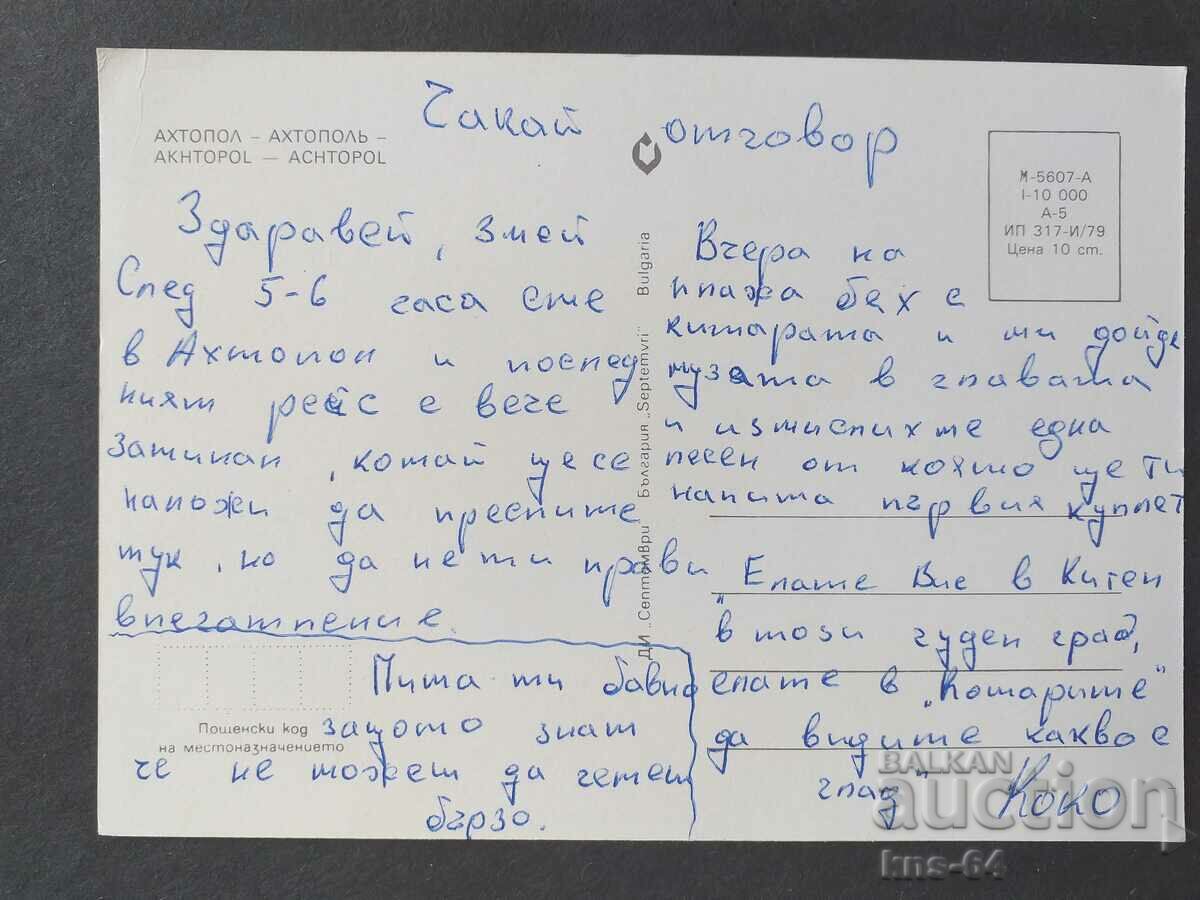 Чакай отговор
АХТОПОЛ – АХТОПОЛЬ –
AKHTOPOL — ACHTOPOL
М-5607-А
I-10 000
А-5
ИП 317-И/79
Цена 10 ст.
Здаравей, змей
След 5-6 часа сме
в Ахтопол и послед
ният рейс е вече
заминал, комай ще се
наложи да преспите
тук, но да не ти прави
впечатление.
Пиша ти бавно
защото знам
че не можеш да четеш
бързо.
Пощенски код
на местоназначението
ДИ „Септември" България „Septemvri" Bulgaria
Вчера на
плажа бех с
китарата и ми дойде
музата в главата
и измислихме една
песен от която ще ти
напиша първия куплет
„Елате Вие в Китен
в този чуден град,
елате в „Кошарите"
да видите какво е
глад"
Коко
BALKAN
auction
kns-64